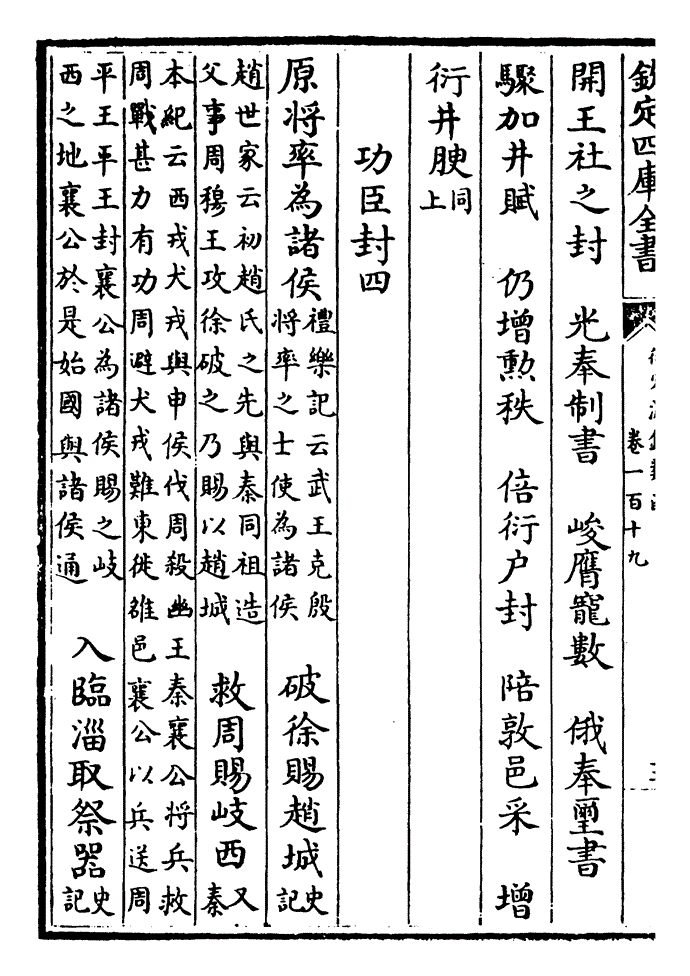 欽定四庫全書
卷一百十九
開王社之封　光奉制書　峻膺寵數　俄奉璽書
驟加井賦　仍增勲秩　倍衍户封　陪敦邑采　增
衍井腴同上
功臣封四
原将率為諸侯禮樂記云武王克殷将率之士使為諸侯　破徐賜趙城史記
趙世家云初趙氏之先與秦同祖造父事周穆王攻徐破之乃賜以趙城　救周賜岐西又秦
本紀云西戎犬戎與申侯伐周殺幽王秦襄公将兵救周戰甚力有功周避犬戎難東徙雒邑襄公以兵送周
平王平王封襄公為諸侯賜之岐西之地襄公於是始國與諸侯通　入臨淄取祭器史記